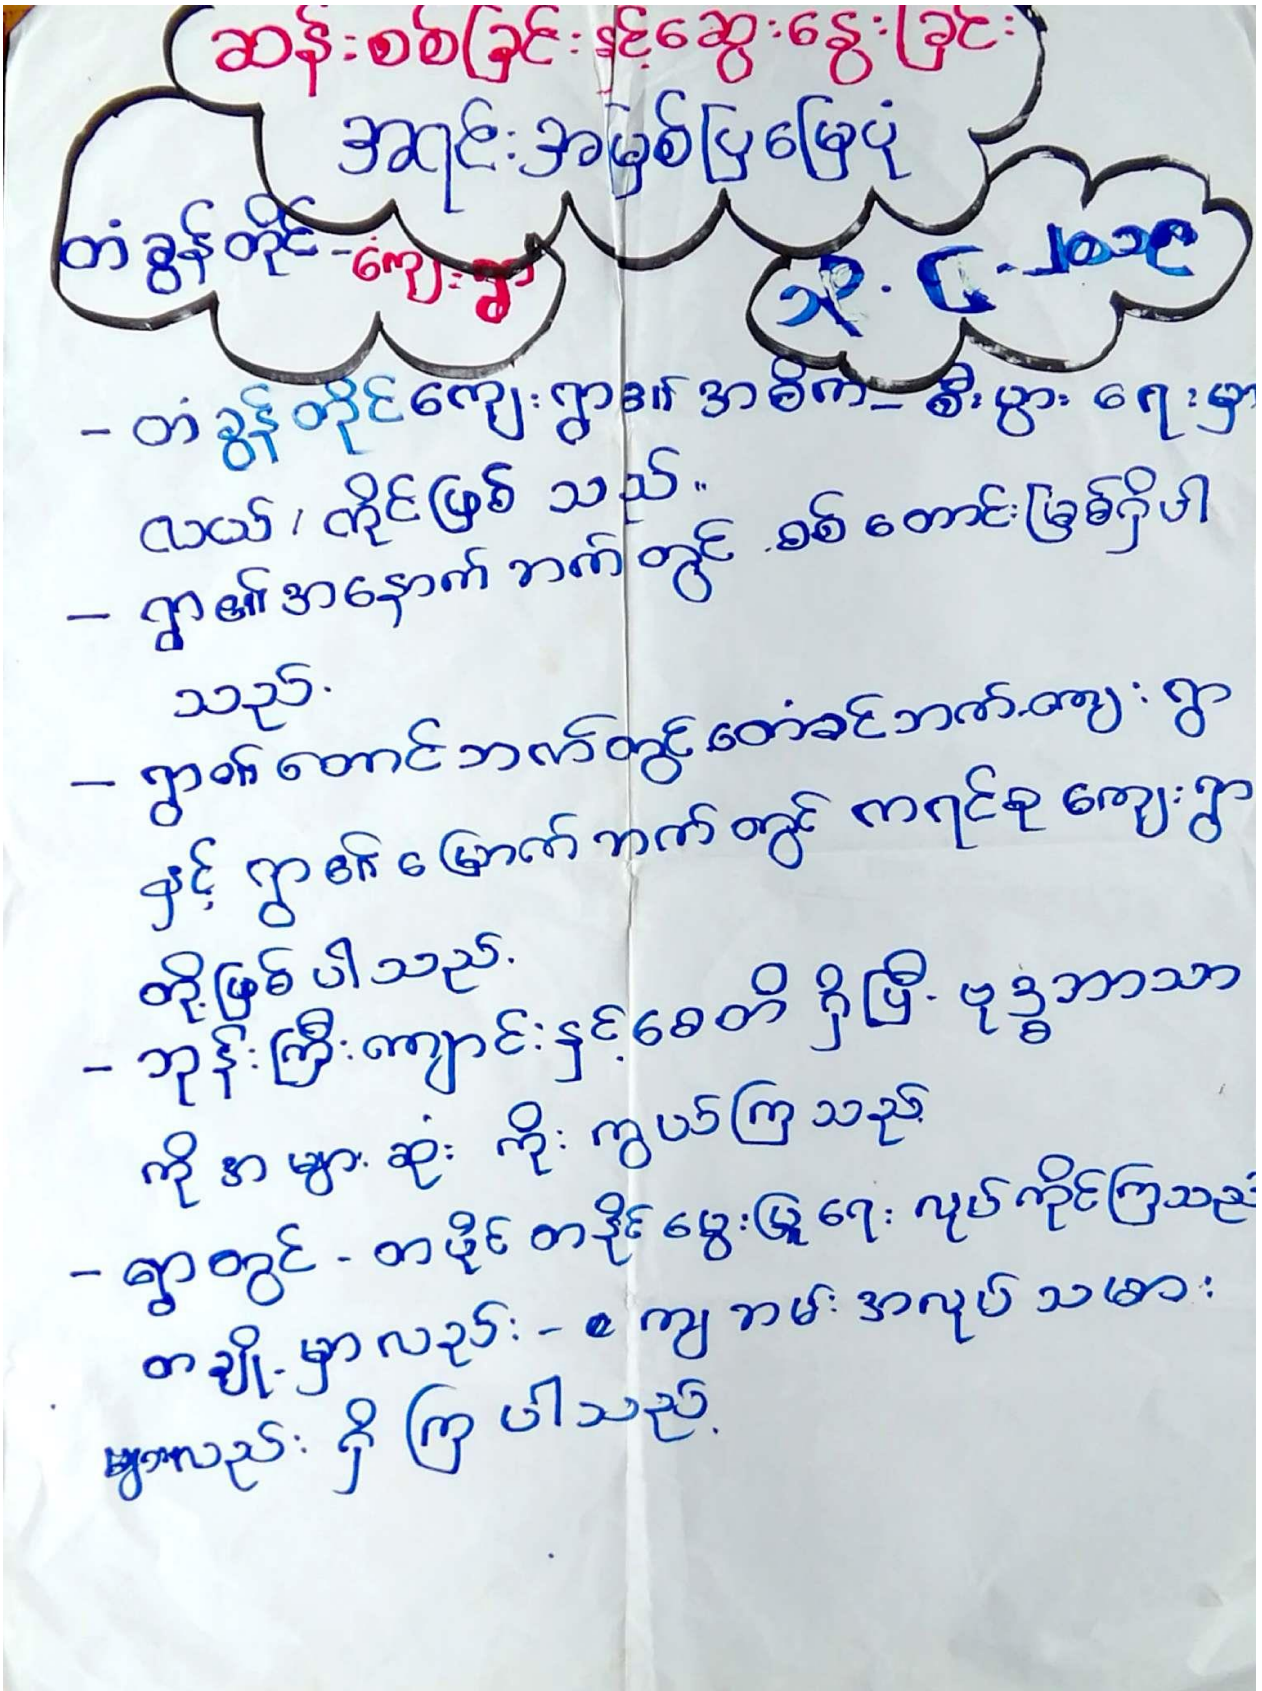 ဆန်းစစ်ခြင်းနှင့်ဆွေးနွေးခြင်း
အရင်းအမြစ်ပြမြေပုံ
တံခွန်တိုင် - ကျေးရွာ
၂၀၁၉
- တံခွန်တိုင်ကျေးရွာ၏အဓိက - စီးပွားရေးမှာ
လယ်၊ ကိုင်းဖြစ်သည်။
- ရွာ၏အနောက်ဘက်တွင် စစ်တောင်းမြစ်ရှိပါ
သည်.
- ရွာ၏တောင်ဘက်တွင်တေံခင်ဘက်ကျေးရွာ
နှင့် ရွာ၏မြောက်ဘက်တွင် ကရင်စုကျေးရွာ
တို့ဖြစ်ပါသည်.
- ဘုန်းကြီးကျောင်းနှင့်စေတီ ရှိပြီ. ဗုဒ္ဓဘာသာ
ကိုအများဆုံး ကိုးကွယ်ကြသည်
- ရွာတွင် - တပိုင်တနိုင်မွေးမြူရေး လုပ်ကိုင်ကြသည်
တချို့မှာလည်း - ကျဘမ်းအလုပ်သမား
များလည်း ရှိကြပါသည်.